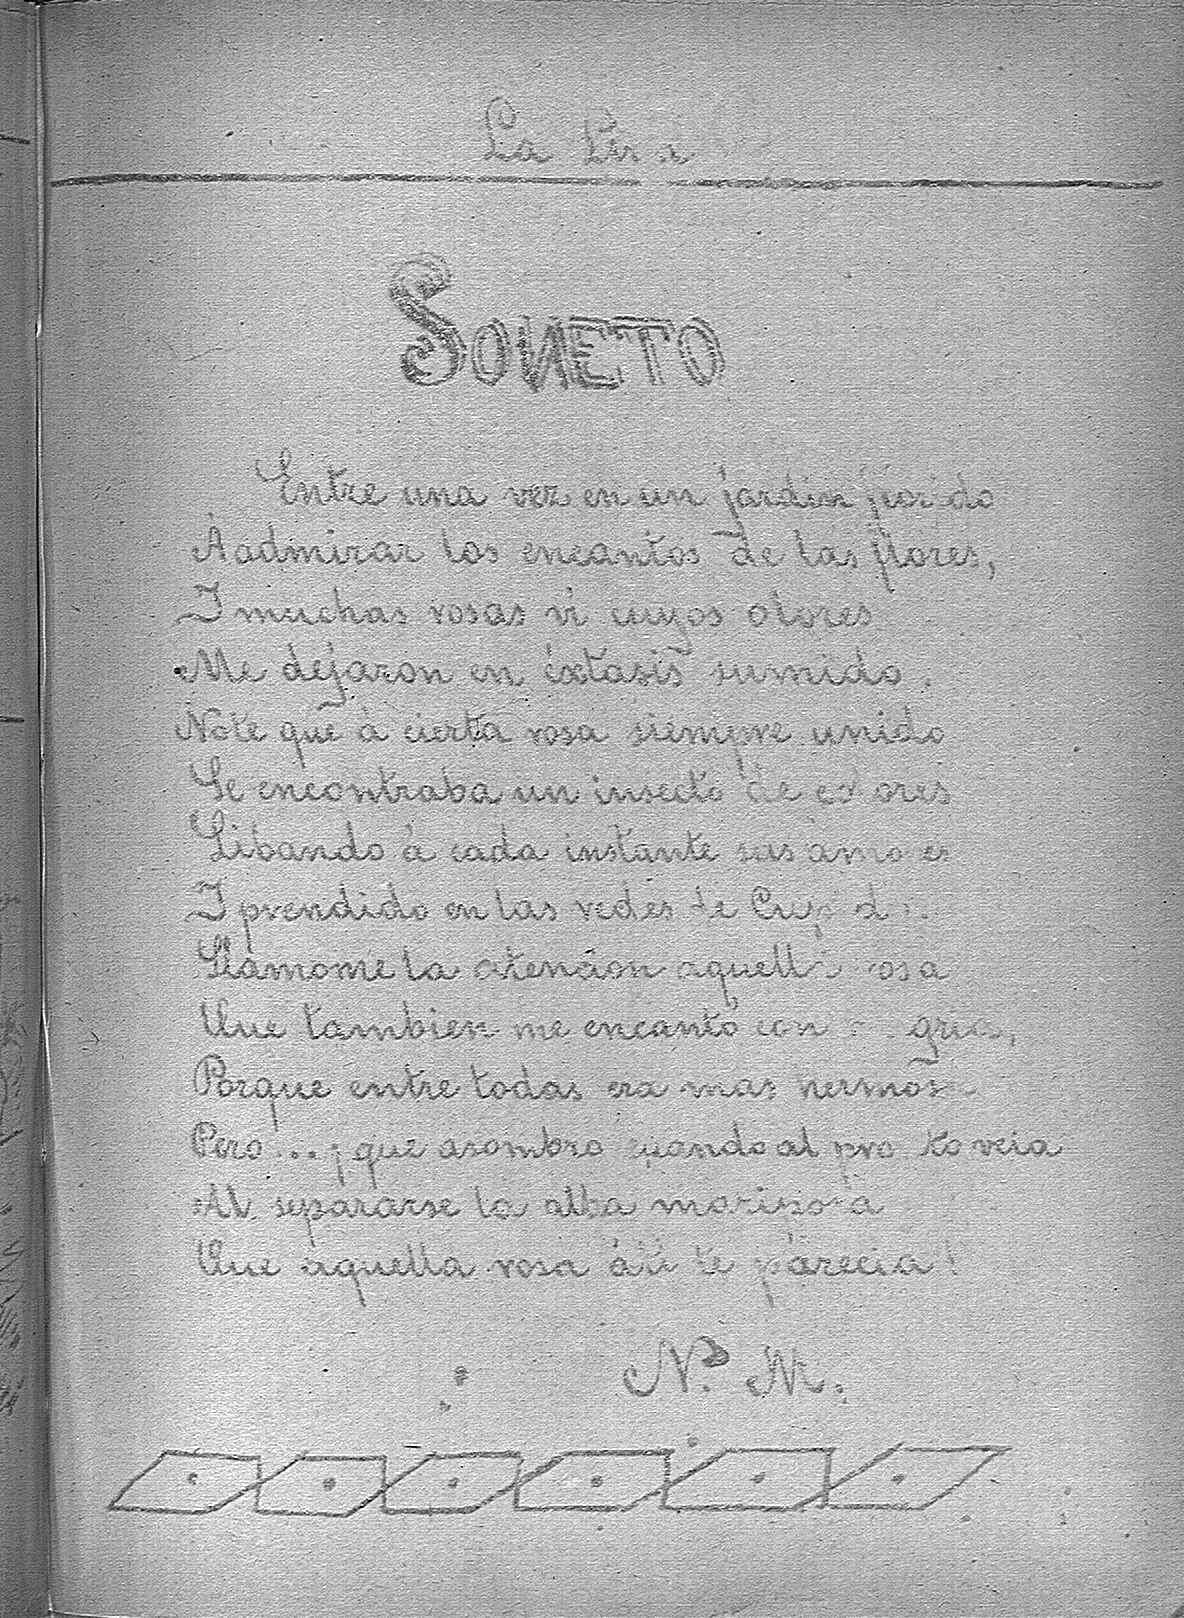 La Lira
SONETO
Entré una vez en un jardin florido
Á admirar los encantos de las flores,
I muchas rosas vi cuyos olores
Me dejaron en éxtasis sumido.
Noté que á cierta rosa siempre unido
Se encontraba un insecto de colores
Libando á cada instante sus amores
I prendido en las redes de
Llamóme la atención aquella rosa
Que tambien me encantó con
Porque entre todas era mas hermosa
Pero... ¡que asombro cuando al pronto veia
Al separarse la alba mariposa
Que aquella rosa á ti te parecia!
N. M.